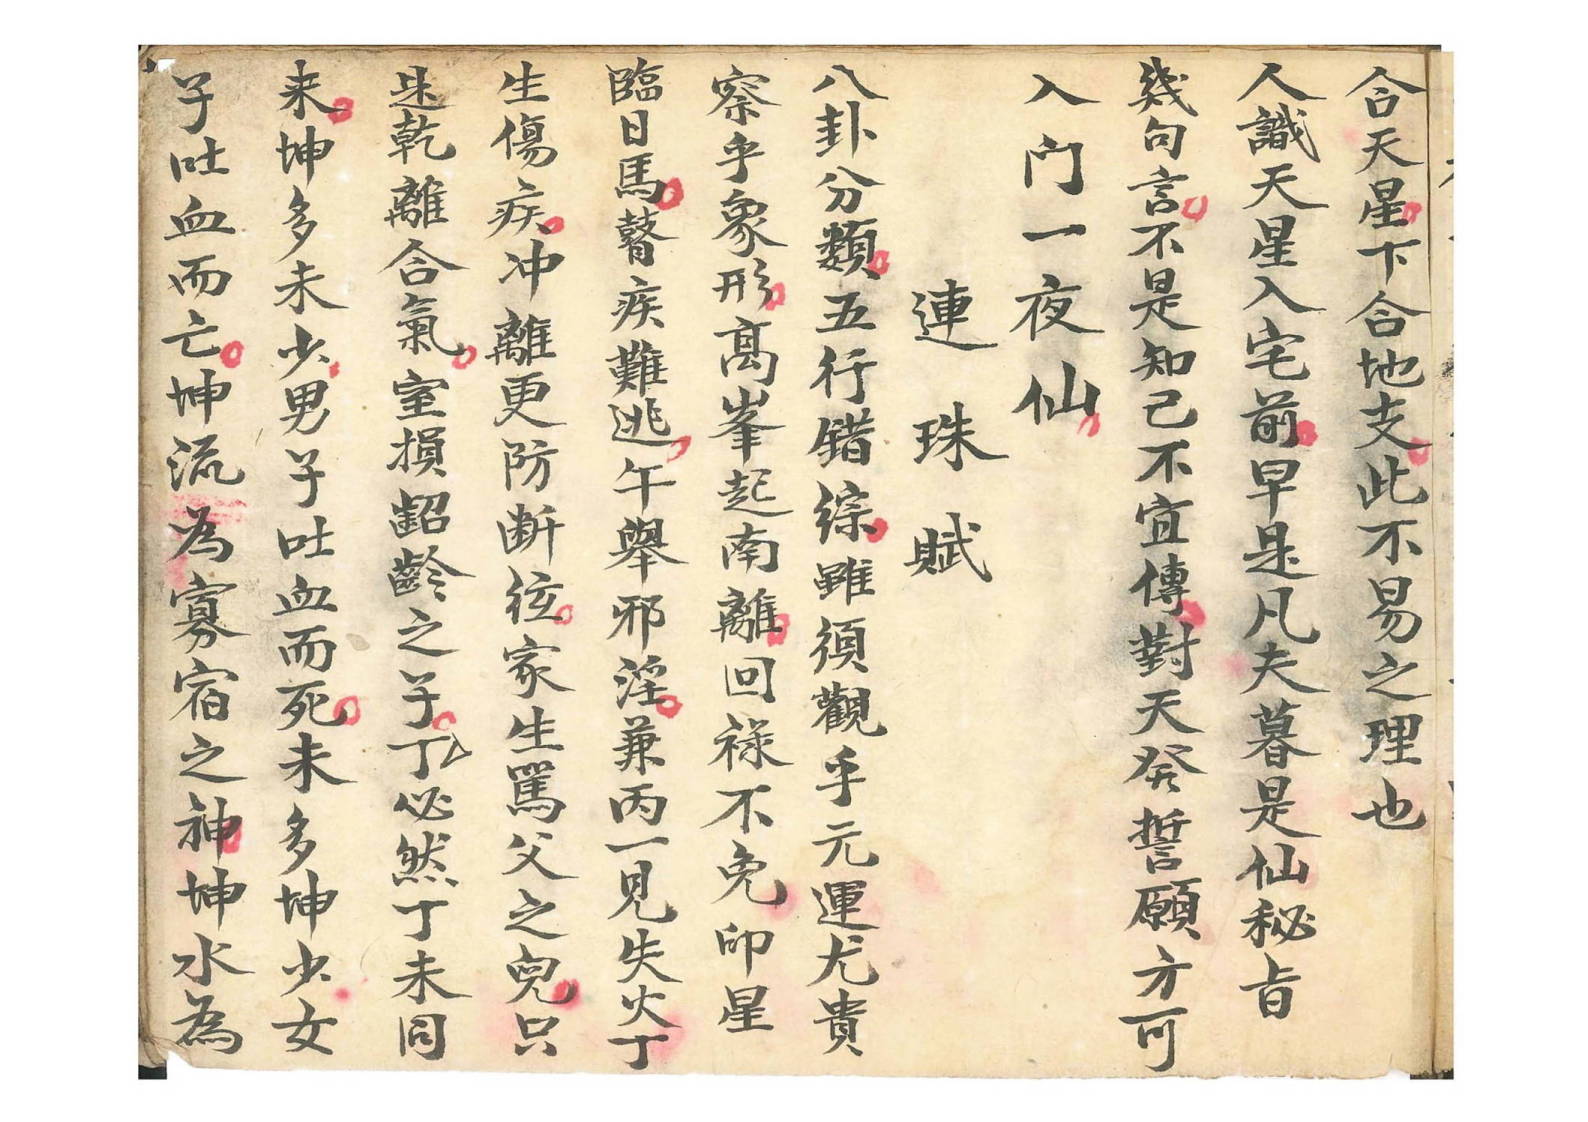 合天星下合地支此不易之理也
人識天星入宅前早是凡夫暮是仙秘旨
幾句言不是知己不宜傳對天癸誓願方可
入门一夜仙
連珠賦
八卦分類五行錯綜雖須觀乎元運尤貴
察乎象形高峯起南離回祿不免印星
臨日馬瞽疾難逃午舉邪淫兼丙一見失火丁
生傷疾冲離更防断弦家生罵父之兒只
乾離合氣室損齠齡之子丁必然丁未同
来坤多未少男子吐血而死未多坤少女
子吐血而亡坤流為寡宿之神坤水為